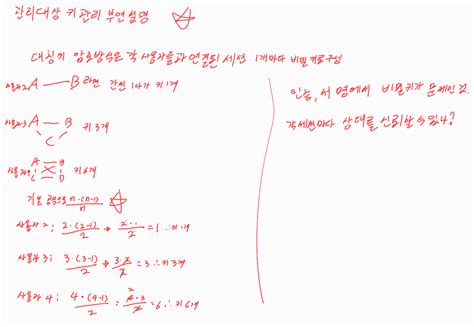 관리대상 키관리 부연설명
대칭키 암호방식은 각 사용자들과 연결된 세션 1개마다 비밀키로구성
사용자2 A — B 라면 간선 1개가 키 1개
사용자3 A — B
C
키 3개
A B
C D
키 6개
기본 공식으로 n·(n-1)/2
사용자 2; 2·(2-1)/2 → =1 ∴키1개
사용자 3; 3·(3-1)/2 → 3·2/2 =3 ∴키3개
사용자 4; 4·(4-1)/2 = 4·3/2 =6 ∴키6개
인증, 서명에서 비밀키가 문제인 것.
각 세션마다 상대를 신뢰할 수 있나?